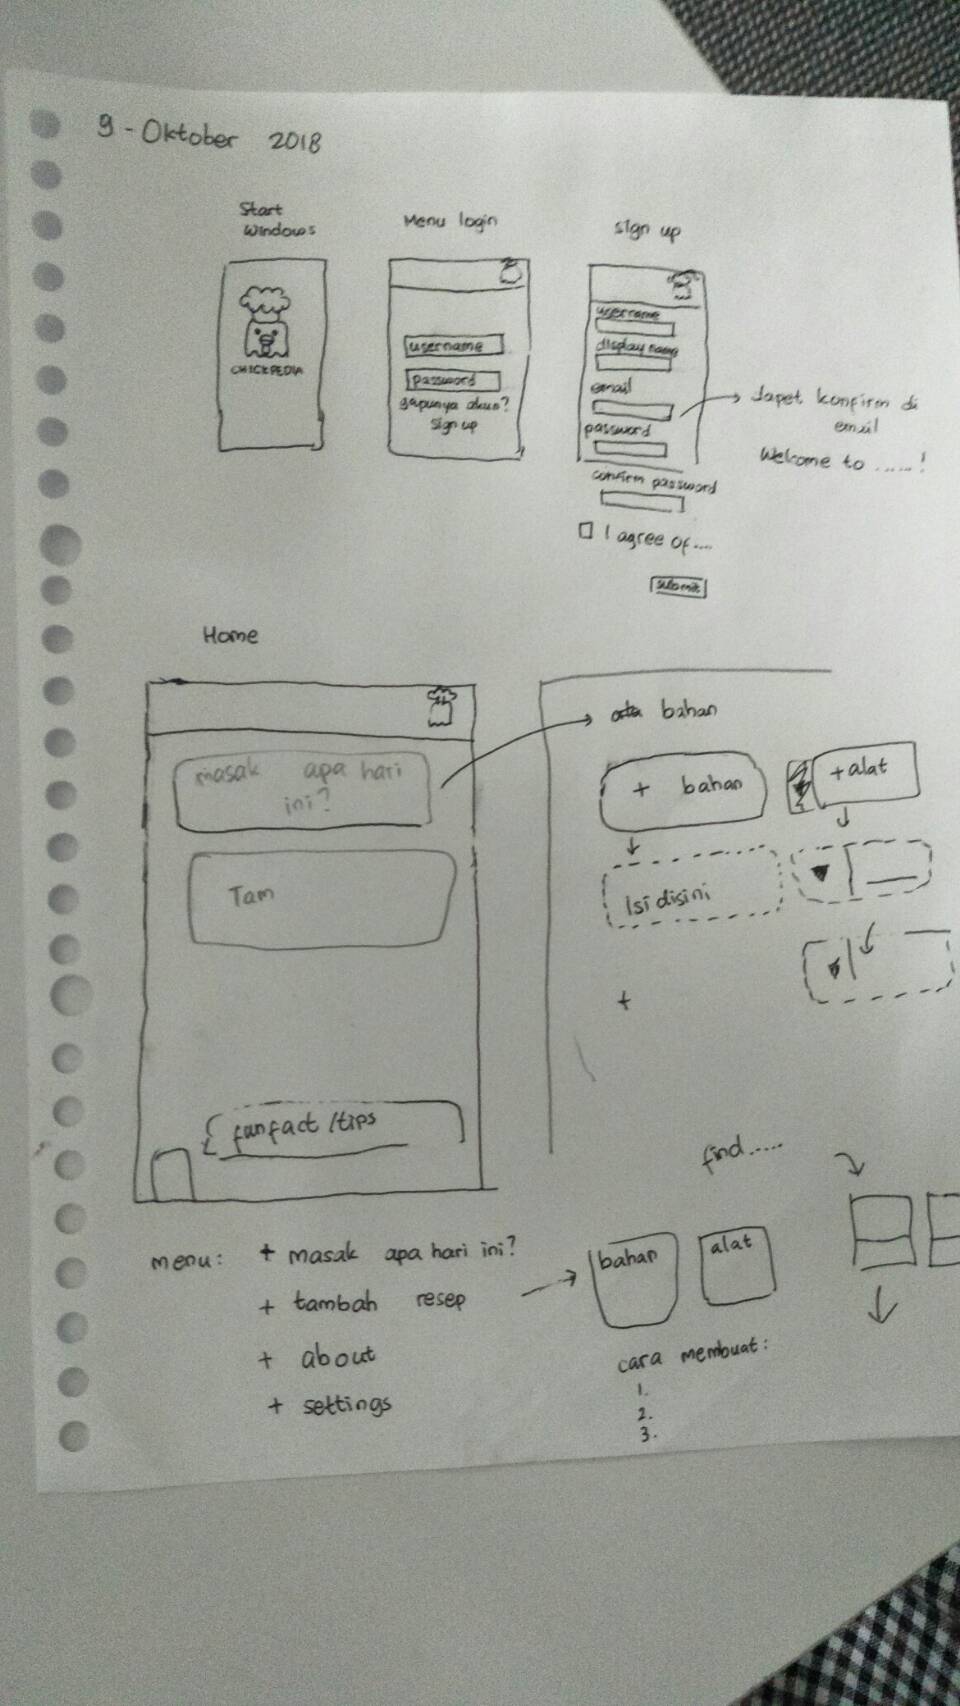 9 - Oktober 2018
Start
Windows
Menu login
sign up
CHICKPEDIA
username
password
gapunya akun?
sign up
username
display name
email
password
confirm password
I agree of....
submit
dapet konfirm di
email
Welcome to ......!
Home
masak apa hari
ini?
Tam
funfact /tips
bahan
+ bahan
+ alat
Isi disini
+
find.....
menu:
+ masak apa hari ini?
+ tambah resep
+ about
+ settings
bahan
alat
cara membuat:
1.
2.
3.